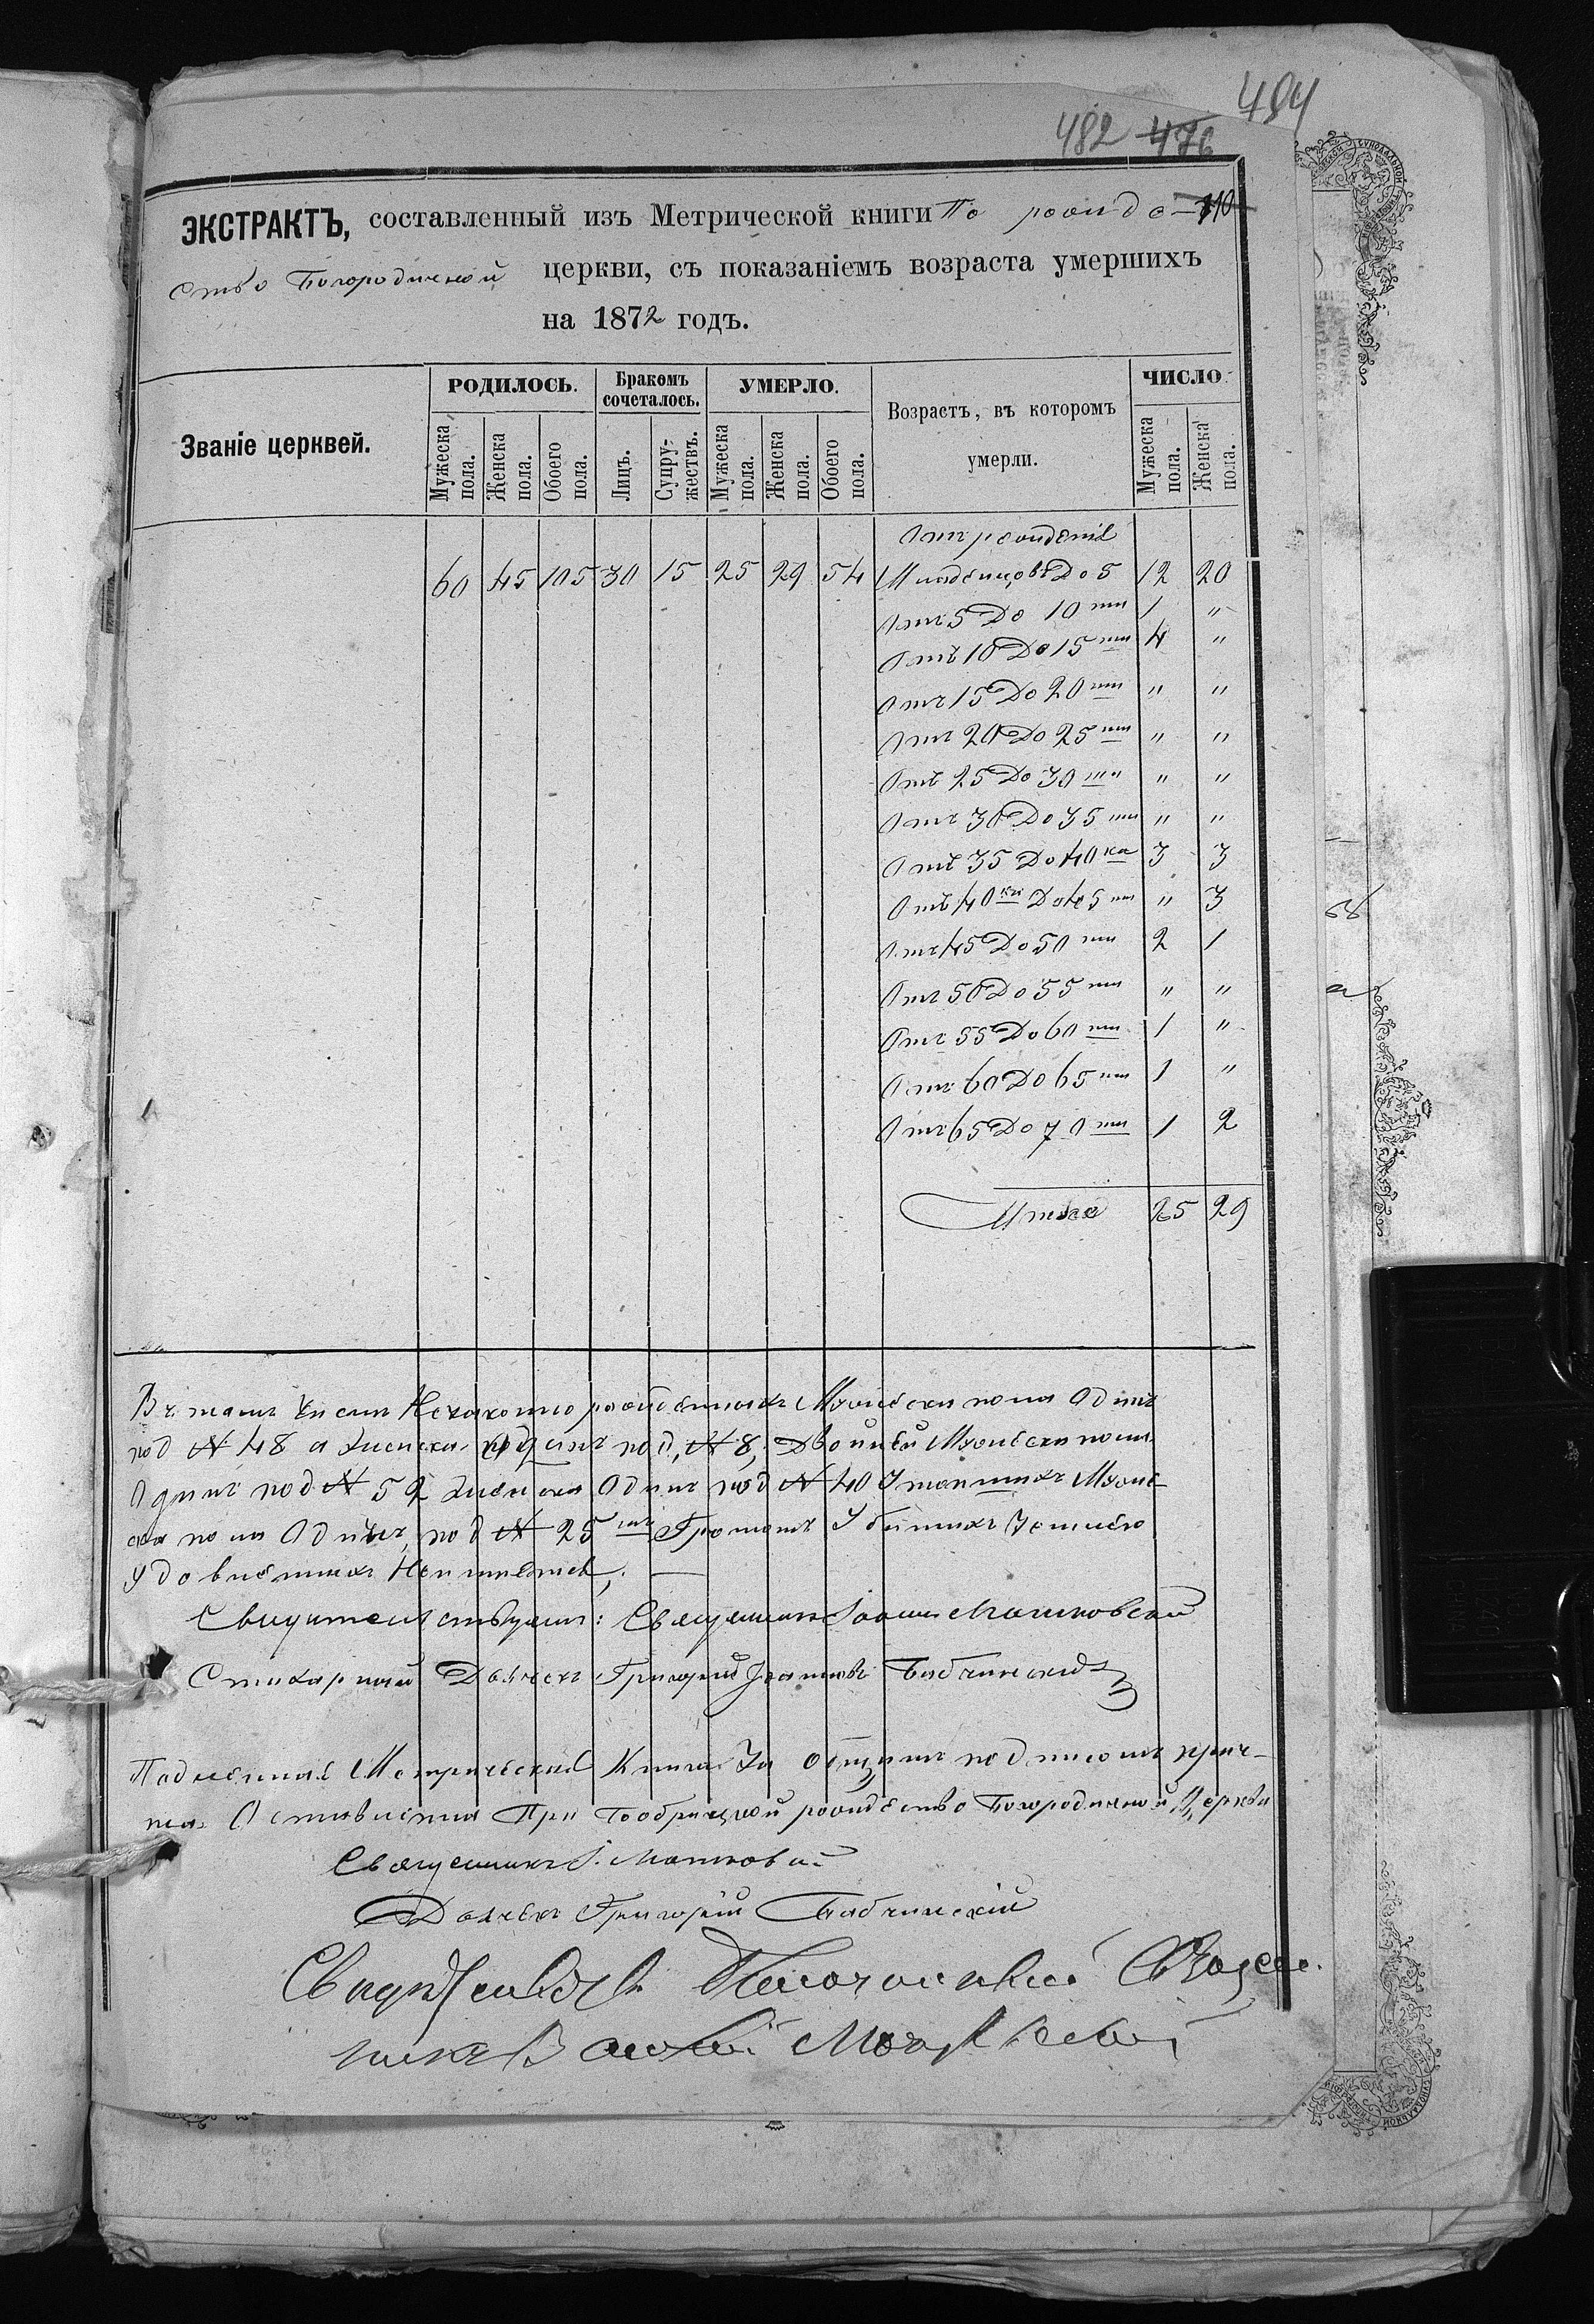 484
482 476
ЭКСТРАКТЪ, составленный изъ Метрической книги По рожде- 110
ство Богородичной церкви, съ показаніемъ возраста умершихъ
на 1872 годъ.
Званіе церквей.
РОДИЛОСЬ. Бракомъ сочеталось. УМЕРЛО. Возрастъ, въ которомъ умерли. ЧИСЛО
Мужеска пола. Женска пола. Обоего пола. Лицъ. Супружествъ. Мужеска пола. Женска пола. Обоего пола. Мужеска пола. Женска пола.
Отъ рожденія
60 45 105 30 15 25 29 54 Младенцовъ До 5 12 20
Отъ 5 До 10 ти 1 "
Отъ 10 До 15 ти 4 "
Отъ 15 До 20 ти " "
Отъ 20 До 25 ти " "
Отъ 25 До 30 ти " "
Отъ 30 До 35 ти " "
Отъ 35 До 40 ка 3 3
Отъ 40 ка До 45 ти " 3
Отъ 45 До 50 ти 2 1
Отъ 50 До 55 ти " "
Отъ 55 До 60 ти 1 "
Отъ 60 До 65 ти 1 "
Отъ 65 До 70 ти 1 2
Итого 25 29
Въ томъ числѣ Незаконно рожденныхъ Мужеска пола Одинъ
под № 48 а Женска Одинъ под, № 8, Двойней Мужеска пола
Одинъ под № 52 Женска Одинъ под № 40 Утопшихъ Муже-
ска пола Одинъ, под № 25 Громомъ Убитыхъ
Удовленныхъ Неимѣется,
Свидительствуемъ: Священникъ Іоаннъ
Стихарный Дьячекъ Григорій Іоанновъ Бабчинскій
Подленная Метрическая Книга За общимъ подписомъ прич-
та Оставлена При рождество Богородичной Церкви
Священникъ І.
Дьячекъ Григорій Бабчинскій